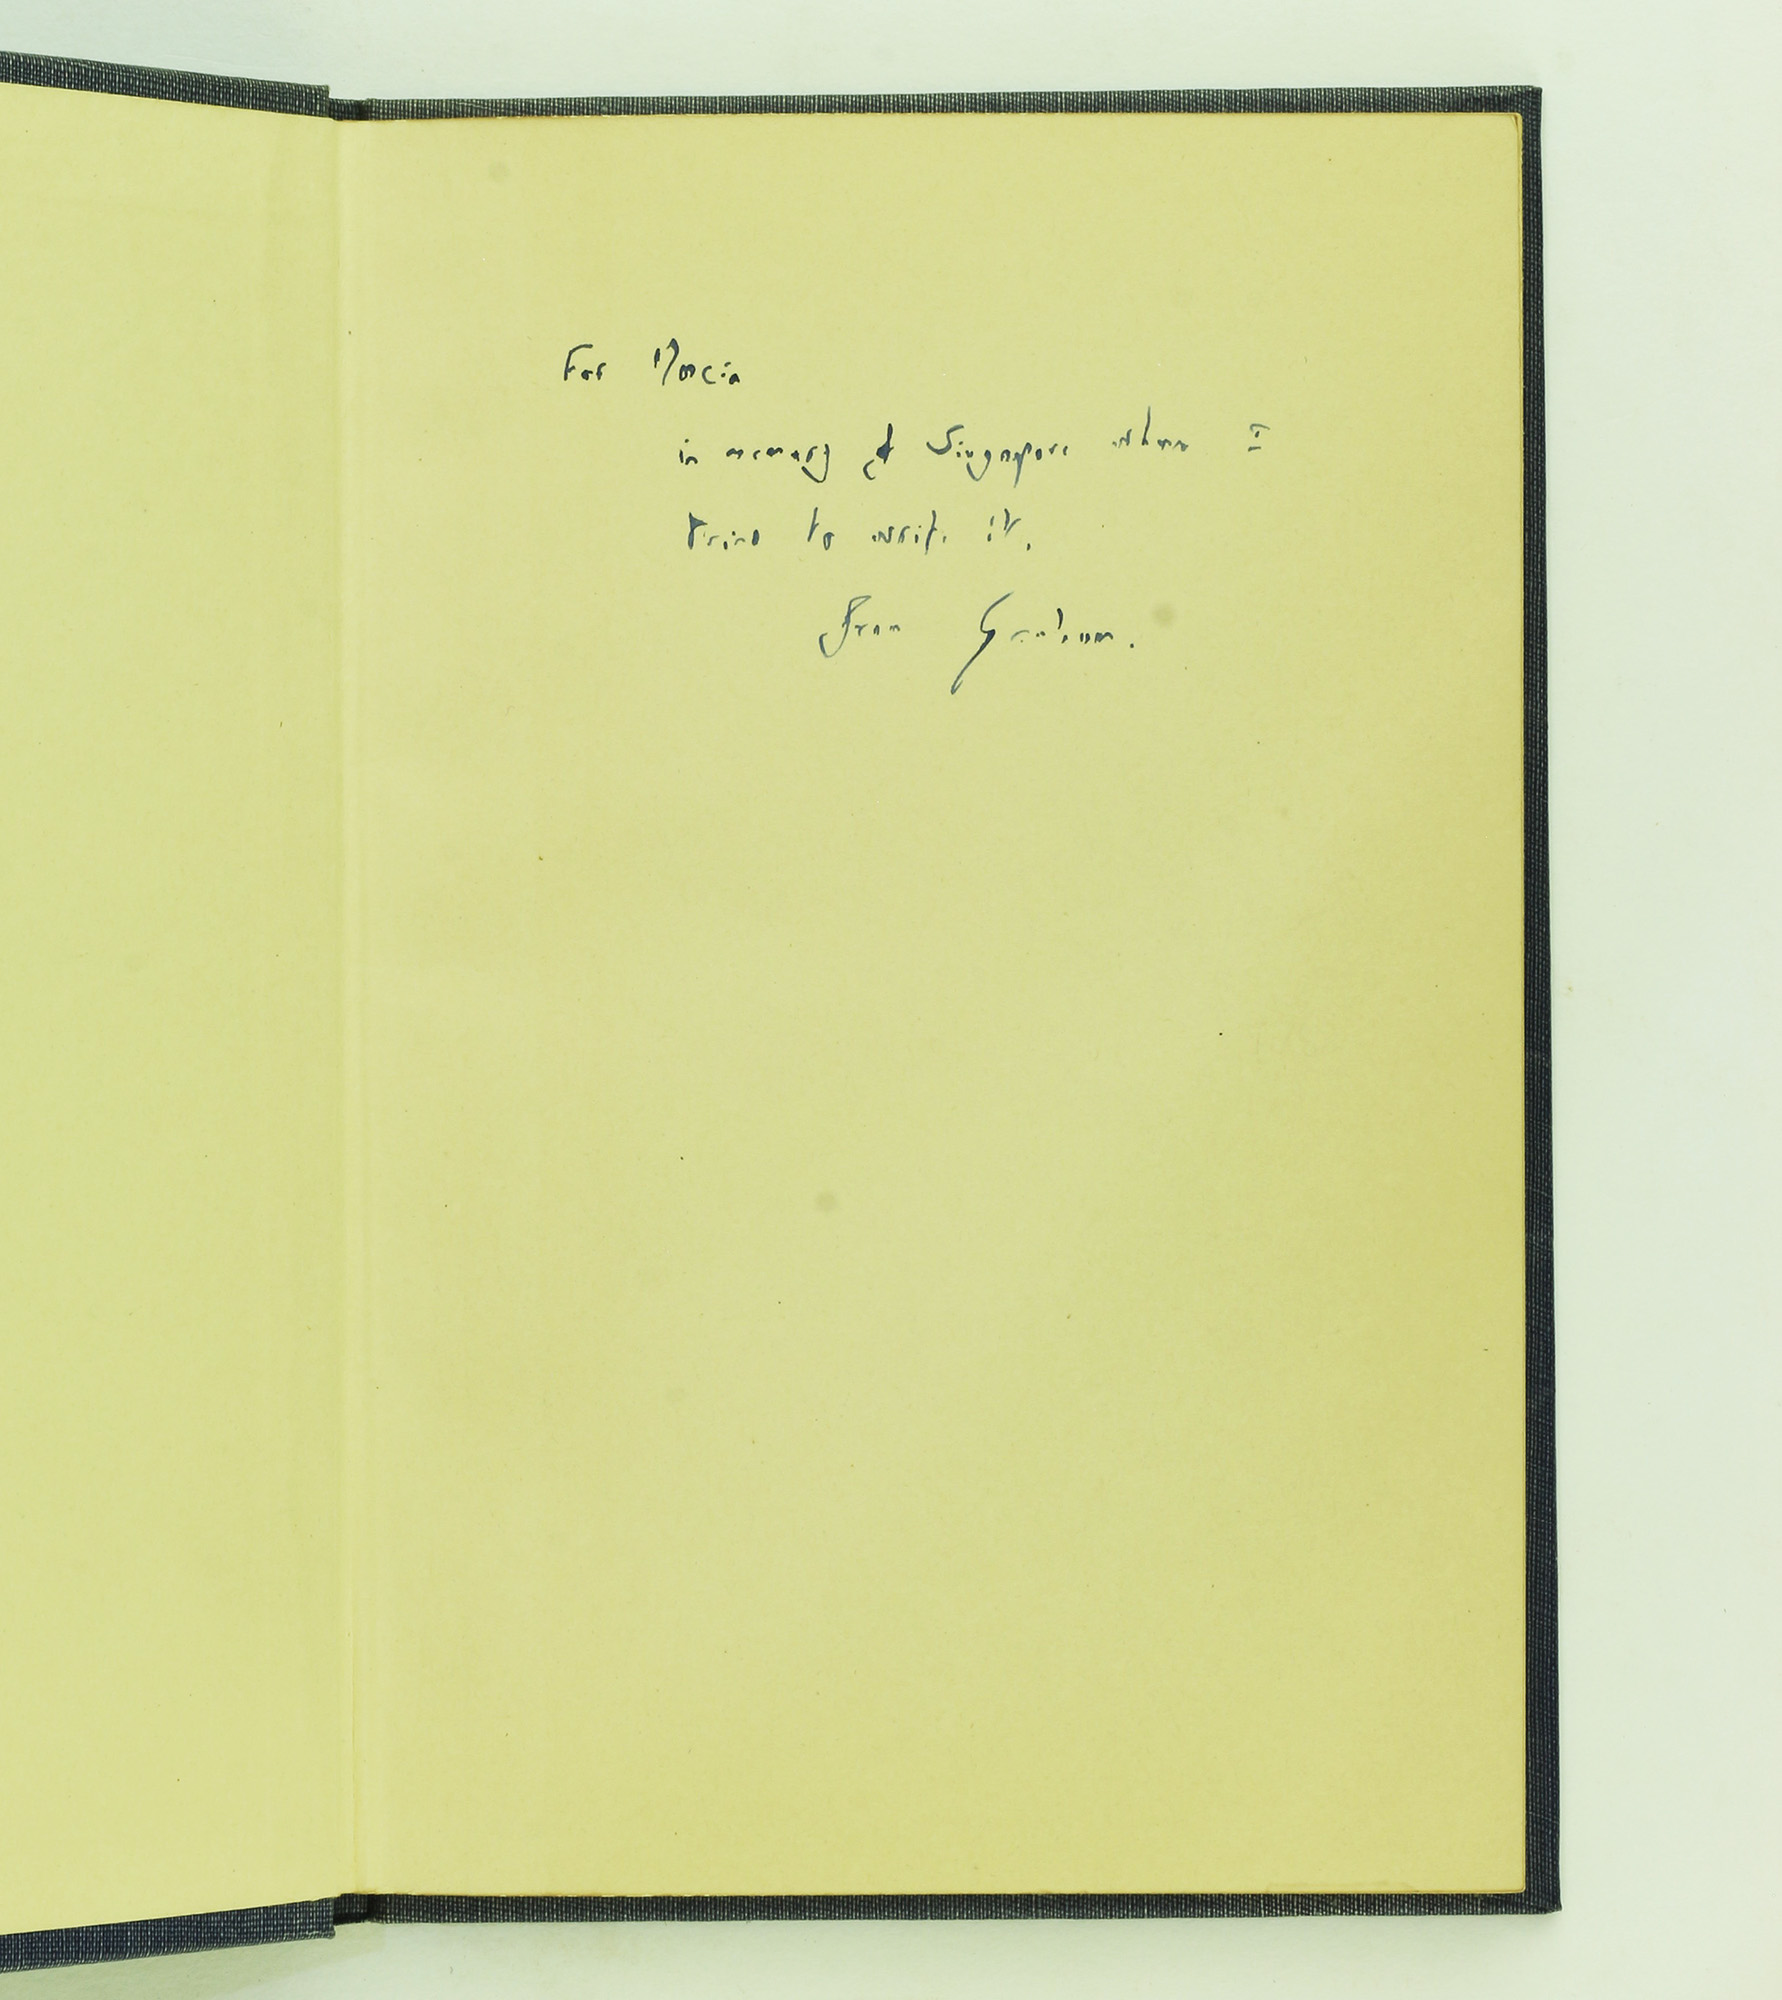 For Marcia
in memory of Singapore where I
tried to write it.
From Graham.